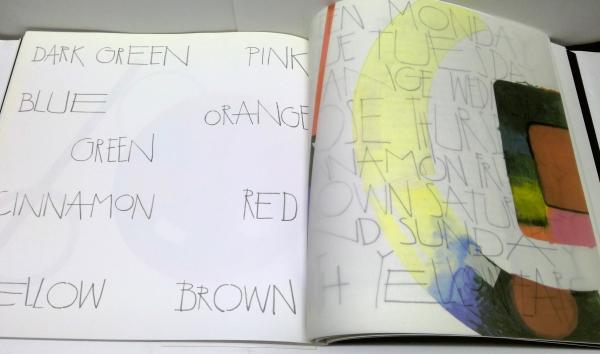 DARK GREEN PINK
BLUE
ORANGE
GREEN
CINNAMON RED
ELLOW BROWN
EN MONDAY
UE TUESDA
ANGE WED
OSE THURS
NAMON FRI
OWN SATUR
ND SUNDAY
H YE